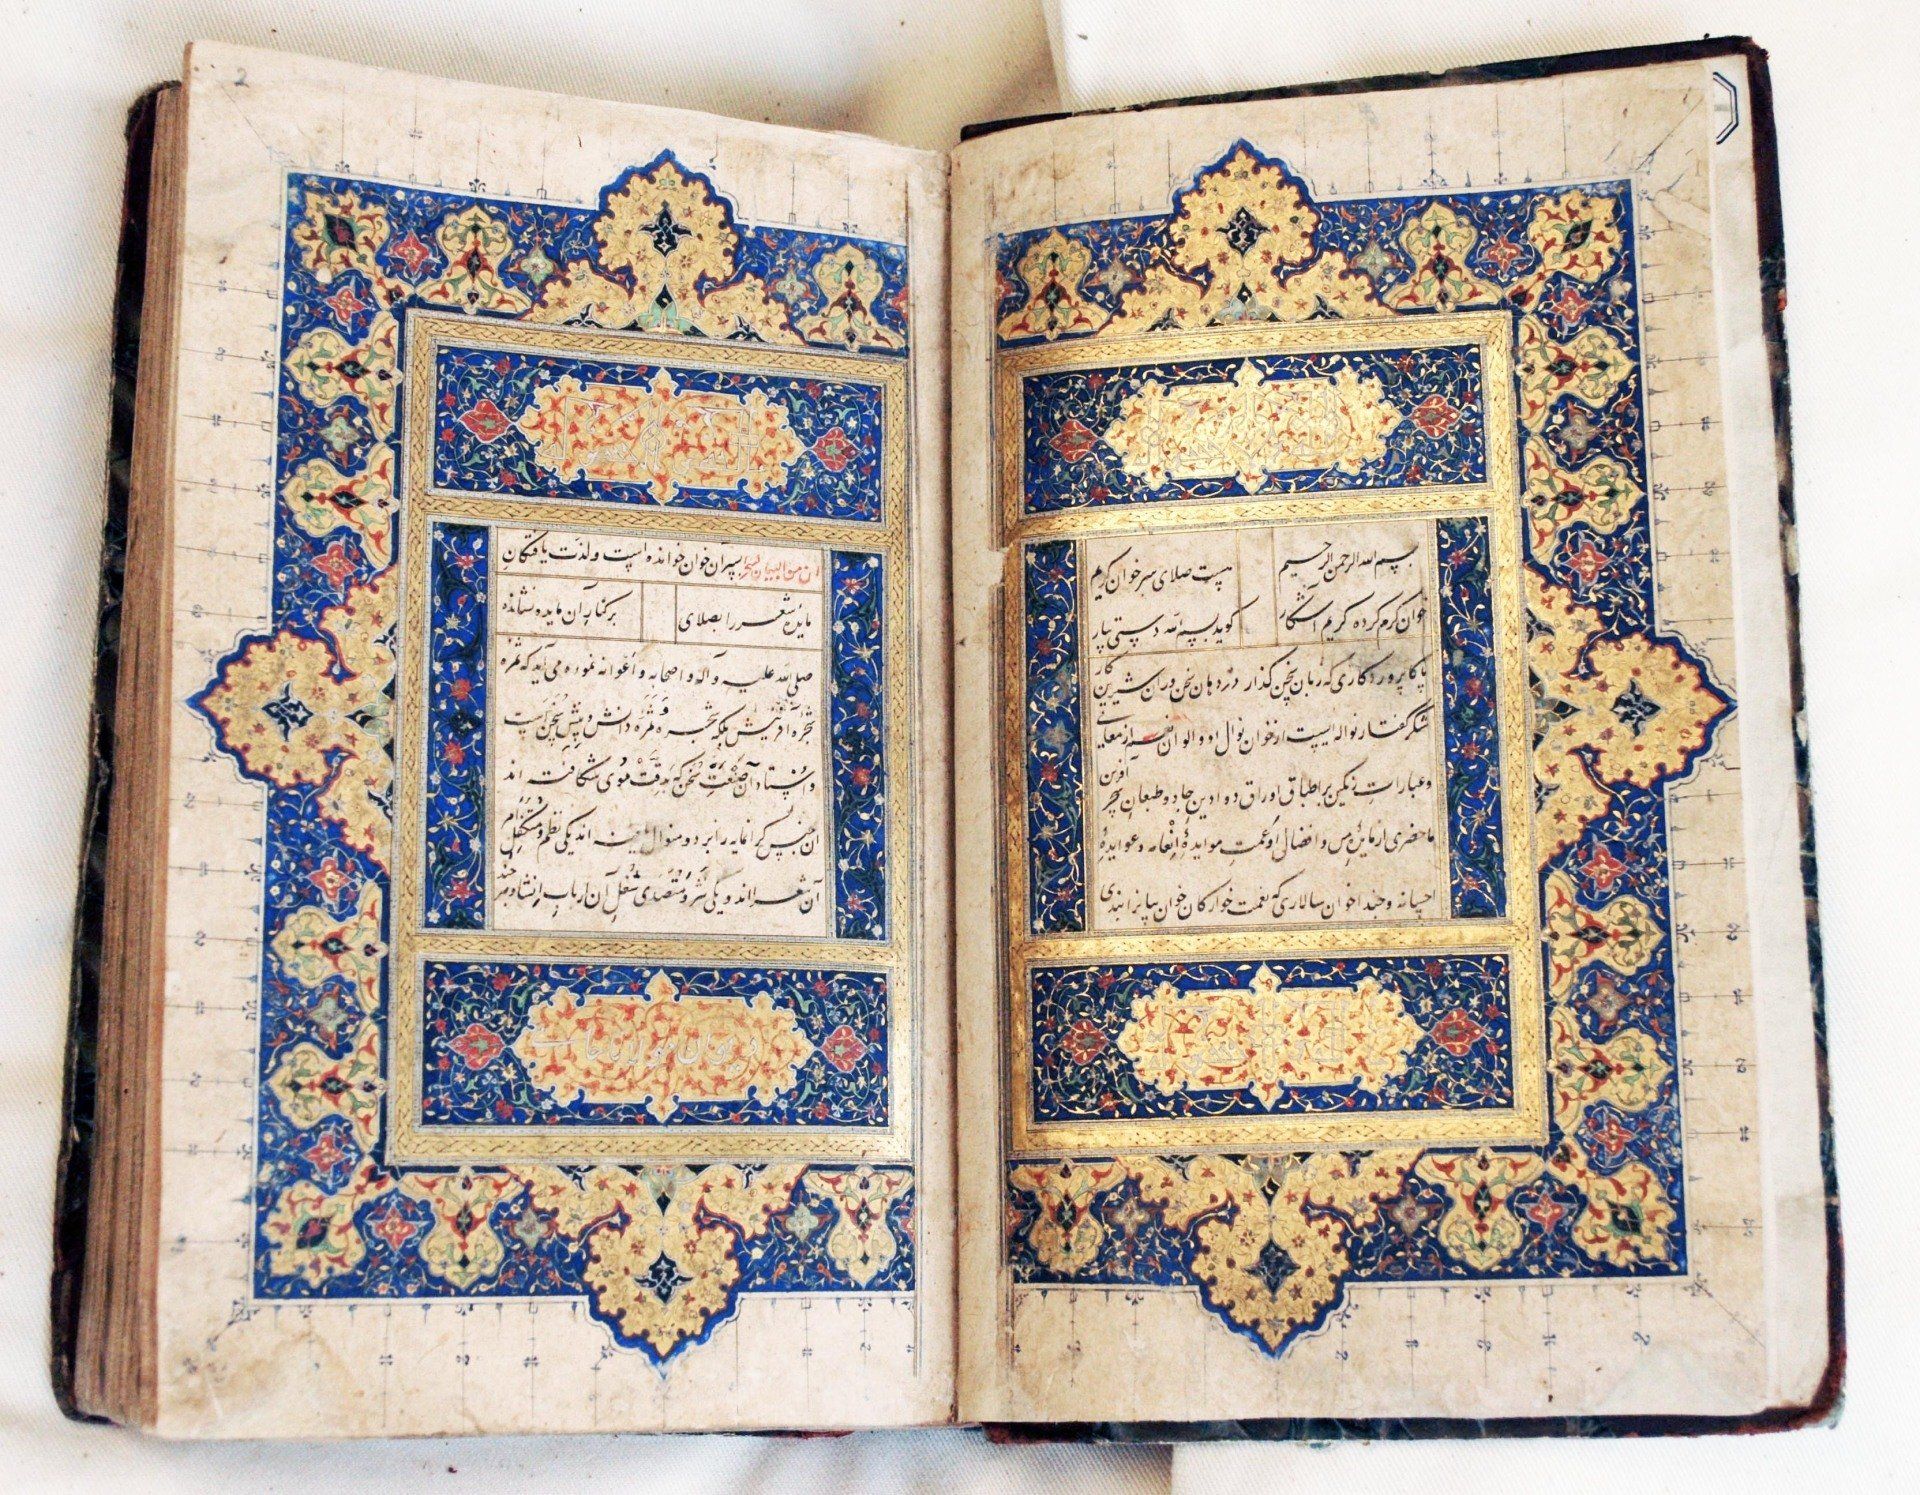 بسم الله الرحمن الرحیم هست صلای سر خوان کریم
خوان کرم کرده کریم آشکار گوید بسم الله دستی بیار
پاکا پروردگاری که زبان سخن گذار در دهان سخن وران شیرین کار
شکر گفتار نواله ایست از خوان نوال او و الوان نغمه از معانی
و عبارات رنگین بر اطباق اوراق دواوین جادو طبعان سحر آفرین
ما حضری از مایده من و افضال او عمت مواید انعامه و عواید
احسانه و خوان سالاری که نعمت خوارگان خوان
ان من البیان لسحرا بر سر آن خوان خوانده است و لذت یافتگان
مایده شعر را بصلای بر کنار آن مایده نشانده
صلی الله علیه و آله و اصحابه و اعوانه نموده می آید که ثمره
شجره آفرینش بلکه شجره ثمره دانش و بینش سخن است
و استادان صنعت سخن که بدقت موی شکافته اند
این جنس گرانمایه را بر دو منوال یافته اند یکی نظم و متکفل
آن شعرا اند و یکی نثر و متصدی شغل آن ارباب انشاء
2